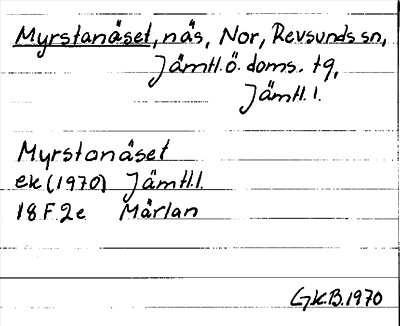 Myrstanäset, näs, Nor, Revsunds sn,
Jämtl. ö. doms. tg,
Jämtl. l.
Myrstanäset
ek (1970) Jämtl. l.
18 F 2e Mårlan
G.K.B. 1970